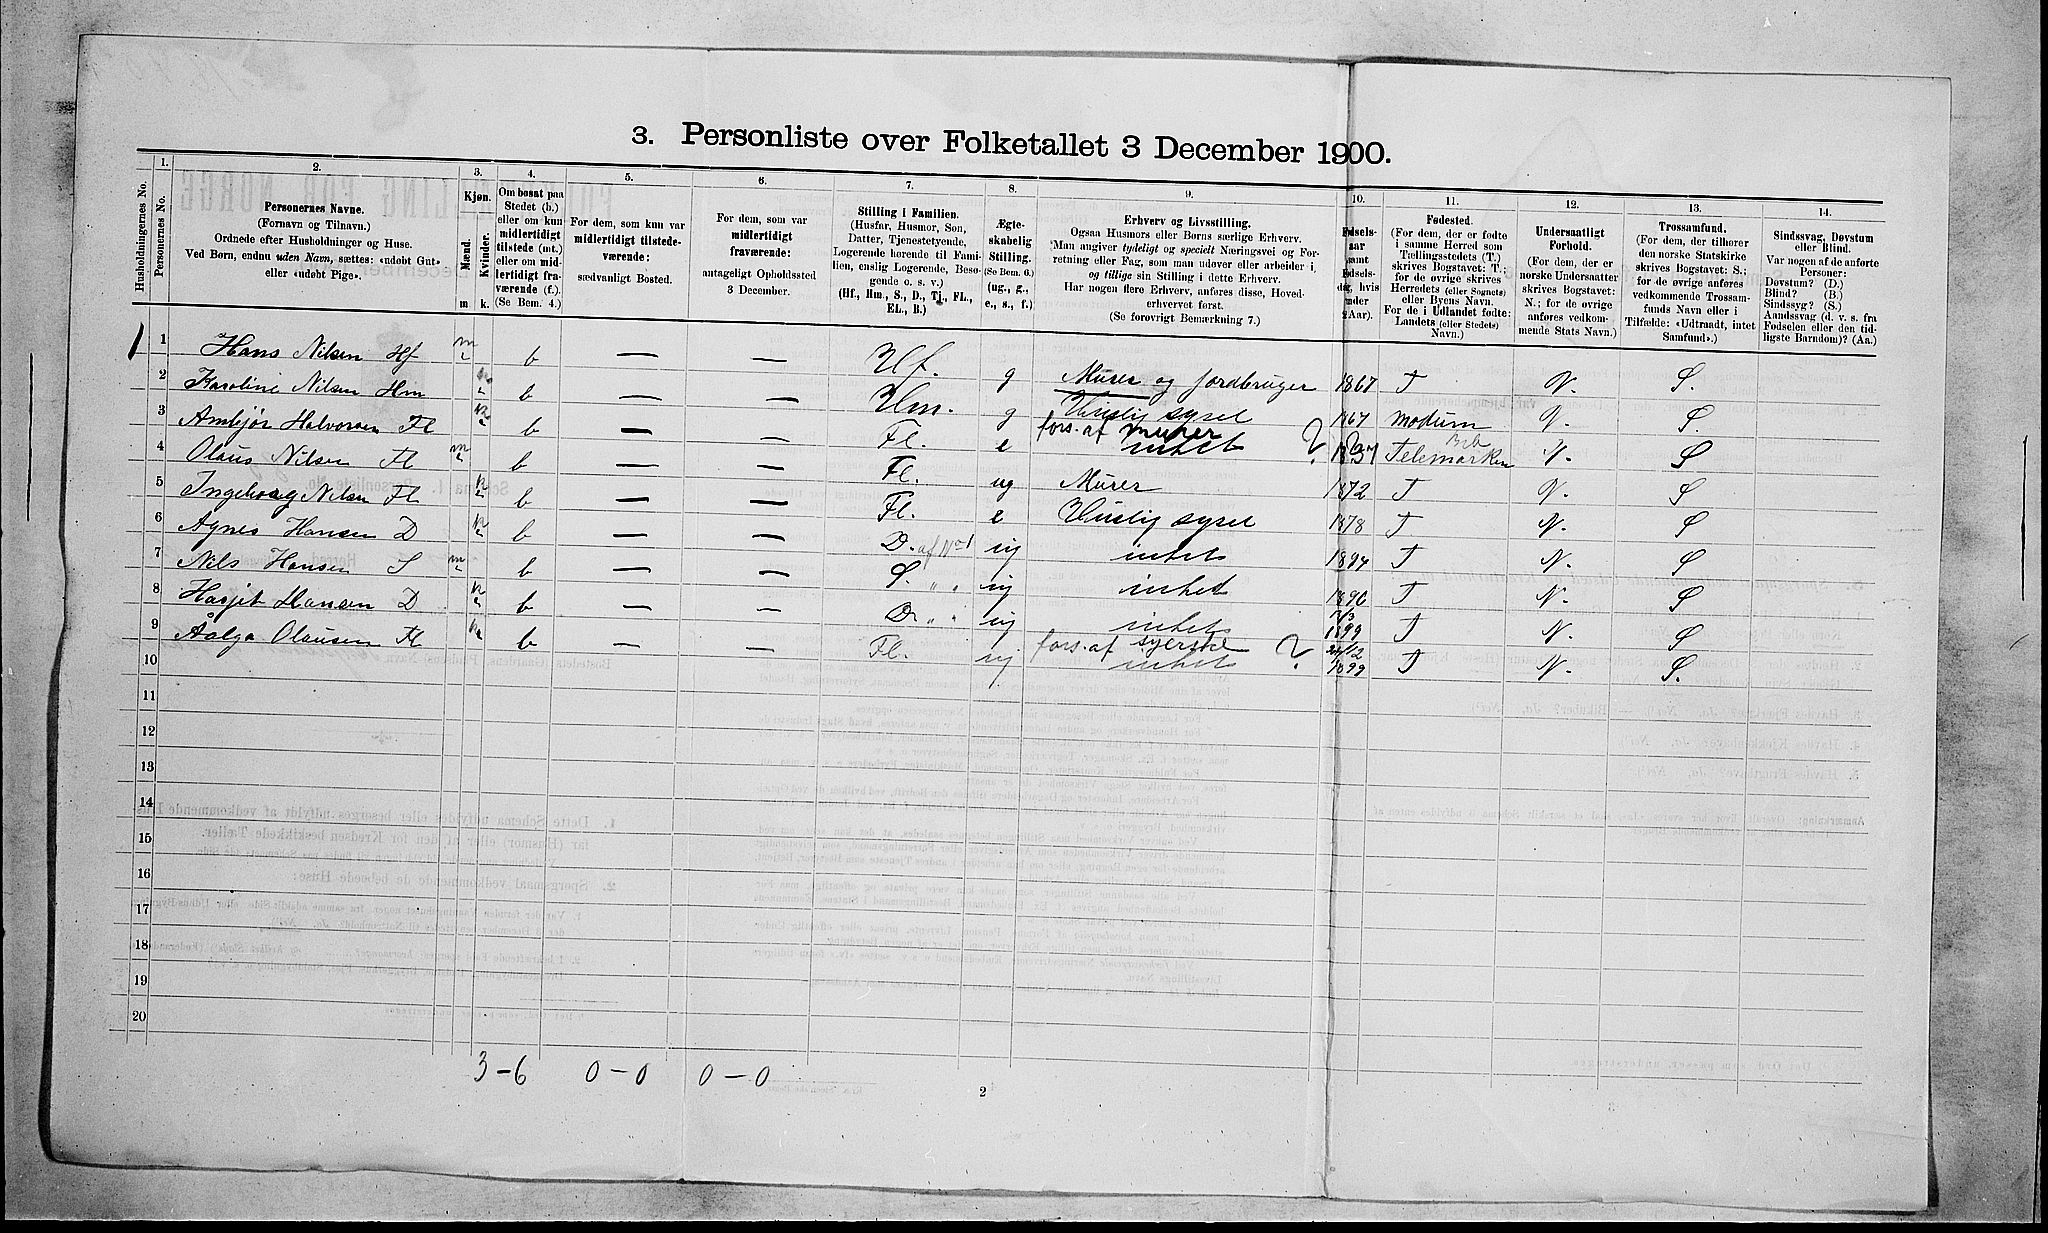 3. Personliste over Folketallet 3 December 1900.
Husholdningernes No.
1. Personernes No.
2. Personernes Navne. (Fornavn og Tilnavn.) Ordnede efter Husholdninger og Huse. Ved Børn, endnu uden Navn, sættes: «udøbt Gut» eller «udøbt Pige».
3. Kjøn. Mænd. Kvinder. m. k.
4. Om bosat paa Stedet (b.) eller om kun midlertidigt tilstede (mt.) eller om midlertidigt fraværende (f.). (Se Bem. 4.)
5. For dem, som kun var midlertidigt tilstedeværende: sædvanligt Bosted.
6. For dem, som var midlertidigt fraværende: antageligt Opholdssted 3 December.
7. Stilling i Familien. (Husfar, Husmor, Søn, Datter, Tjenestetyende, Logerende hørende til Familien, enslig Logerende, Besøgende o. s. v.) (Hf., Hm., S., D., Tj., FL., EL., B.)
8. Ægteskabelig Stilling. (Se Bem. 6.) (ug., g., e., s., f.)
9. Erhverv og Livsstilling. Ogsaa Husmors eller Børns særlige Erhverv. Man angiver tydeligt og specielt Næringsvei og Forretning eller Fag, som man udøver eller arbeider i, og tillige sin Stilling i dette Erhverv. Har nogen flere Erhverv, anføres disse, Hovederhvervet først. (Se forøvrigt Bemærkning 7.)
10. Fødselsaar (samt Fødselsdag, hvis under 2 Aar).
11. Fødested. (For dem, der er fødte i samme Herred som Tællingsstedets (T.) skrives Bogstavet: T.; for de øvrige skrives Herredets (eller Sognets) eller Byens Navn. For de i Udlandet fødte: Landets (eller Stedets) Navn.)
12. Undersaatligt Forhold. (For dem, der er norske Undersaatter skrives Bogstavet: N.; for de øvrige anføres vedkommende Stats Navn.)
13. Trossamfund. (For dem, der tilhører den norske Statskirke skrives Bogstavet: S.; for de øvrige anføres vedkommende Trossamfunds Navn eller i Tilfælde: «Udtraadt, intet Samfund».)
14. Sindssvag, Døvstum eller Blind. Var nogen af de anførte Personer: Døvstum? (D.) Blind? (B.) Sindssyg? (S.) Aandssvag (d. v. s. fra Fødselen eller den tidligste Barndom)? (Aa.)
1 1 Hans Nilsen Hf m b — — Hf. g Murer og jordbruger 1867 T N. S.
2 Karoline Nilsen Hm k b — — Hm. g Huslig sysel 1867 Modum N. S.
3 Ambjør Halvorsen Fl k b — — Fl. e fors. af murer intet ? 1837 Telemarken N. S
4 Olaus Nilsen Fl m b — — Fl. ug Murer 1872 T N. S
5 Ingeborg Nilsen Fl k b — — Fl. e Huslig sysel 1878 T N. S
6 Agnes Hansen D k b — — D. af No 1 ug intet 1894 T N. S
7 Nils Hansen S m b — — S. " " ug intet 1896 T N. S
8 Harjet Hansen D k b — — D. " " ug intet 1899 T N. S
9 Aalga Olausen Fl k b — — Fl. ug fors. af syerske intet ? 24/12 1899 T N. S.
10
11
12
13
14
15
16
17
18
19
20
3 – 6 0 – 0 0 – 0
2